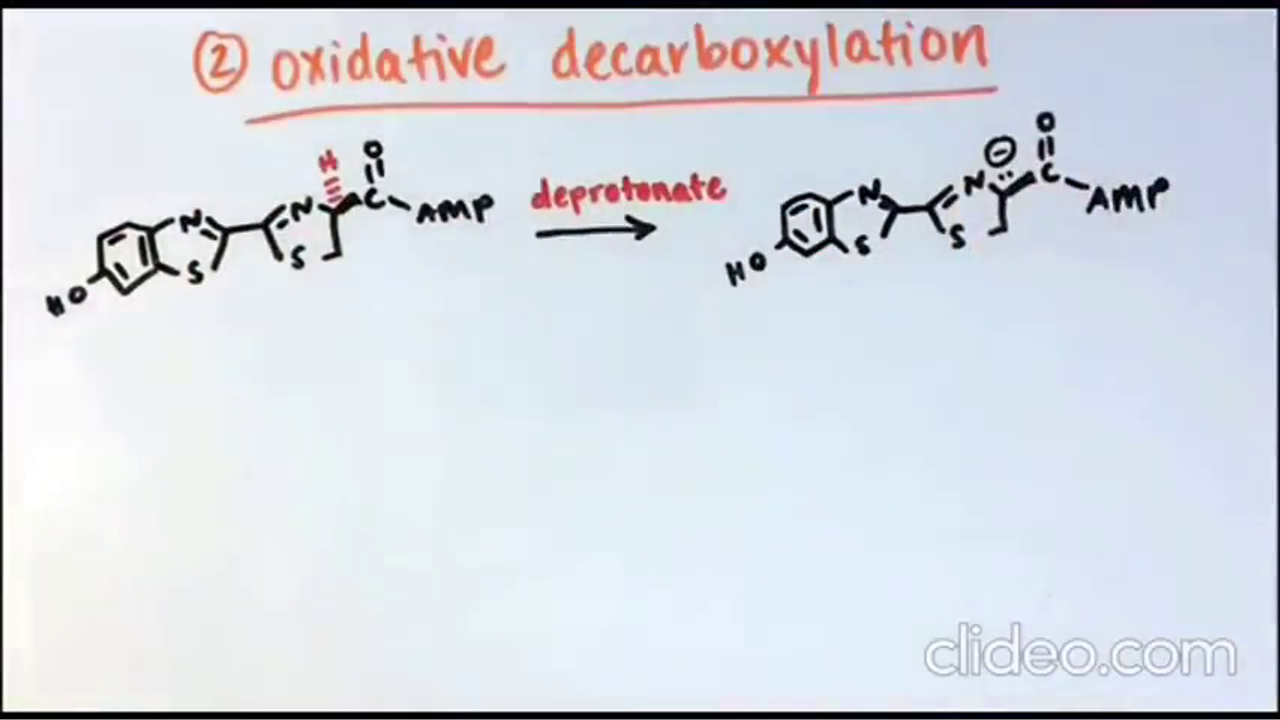 ② oxidative decarboxylation
H O
N N O
HO S S C AMP
deprotonate
⊖ O
N N C AMP
HO S S
clideo.com